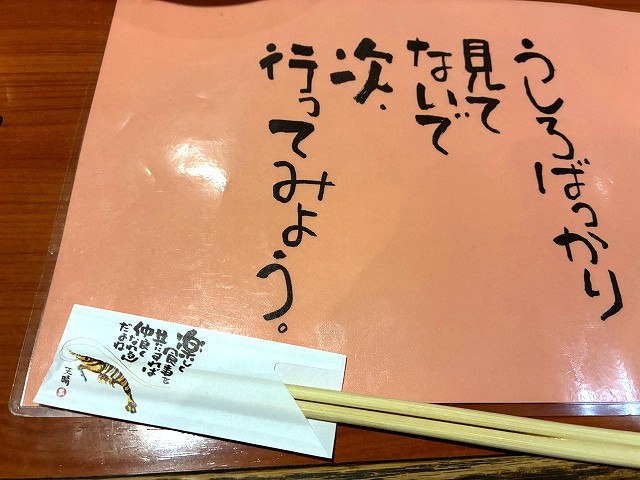 うしろばっかり
見て
ないで
次、
行ってみよう。
楽しく
食事を
共にすれば
仲良く
なれる
だよね
天晴